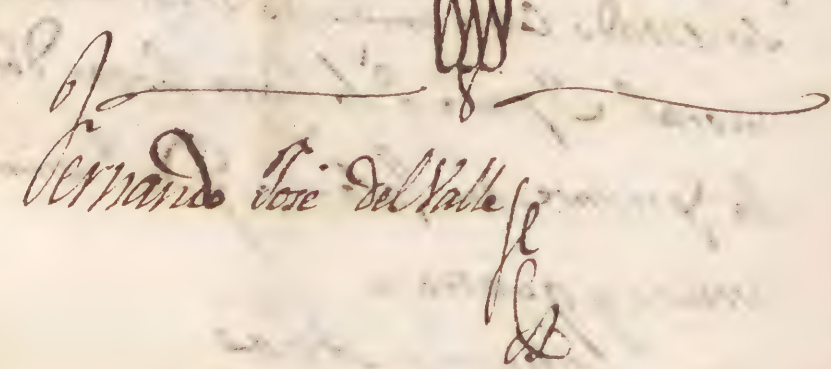 Fernando Jose del Valle